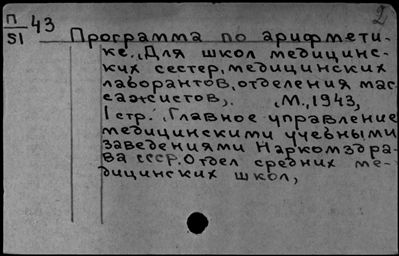 2
П 43
51
Программа по арифмети-
ке., Для школ медицинс-
ких сестер, медицинских
лаборантов, отделения мас-
сажистов,. М., 1943,
1 стр. , Главное управление
медицинскими учебными
заведениями Наркомздра-
ва СССР. Отдел средних ме-
дицинских школ,